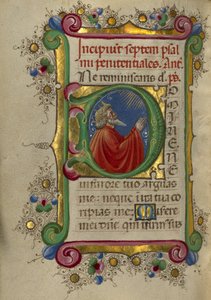 Incipiunt septem psal
mi penitentiales. Ant.
Ne reminiscaris d. ps
D OMINE NE
in furore tuo arguas
me: neque in ira tua co
ripias me: Misere
mei domine qm infirmus